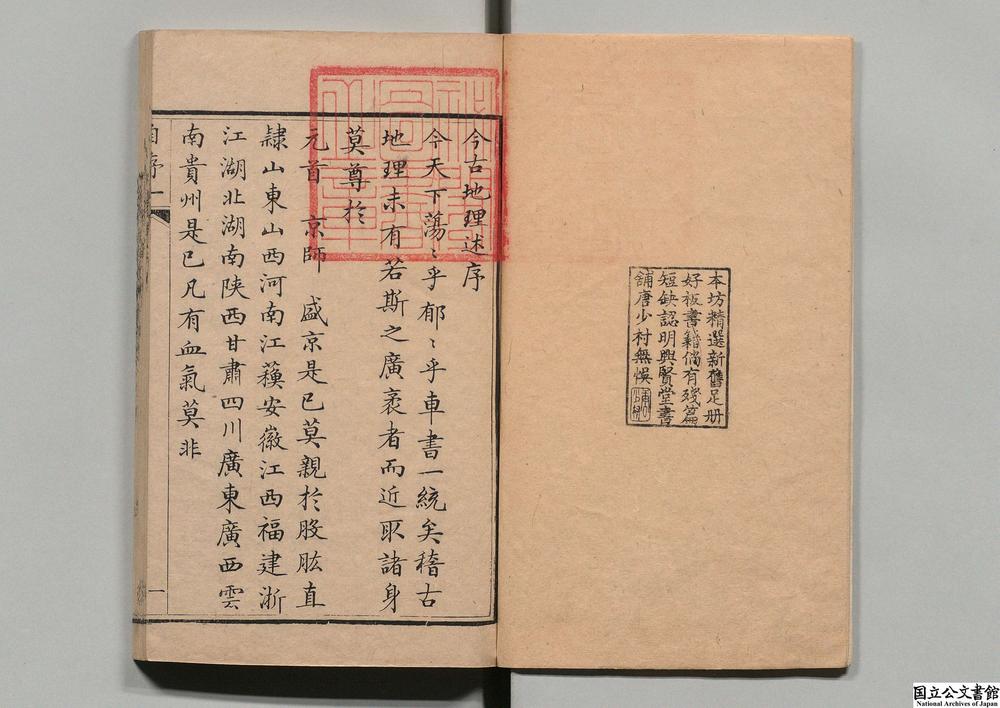 本坊精選新舊足册
好板書籍倘有殘篇
短缺認明興賢堂書
鋪唐少村無悞
今古地理述序
今天下蕩〻乎郁〻乎車書一統矣稽古
地理未有若斯之廣袤者而近取諸身
莫尊於
元首　京師　盛京是已莫親於股肱直
隸山東山西河南江蘓安徽江西福建浙
江湖北湖南陕西甘肅四川廣東廣西雲
南貴州是已凡有血氣莫非
自序一
一
国立公文書館
National Archives of Japan